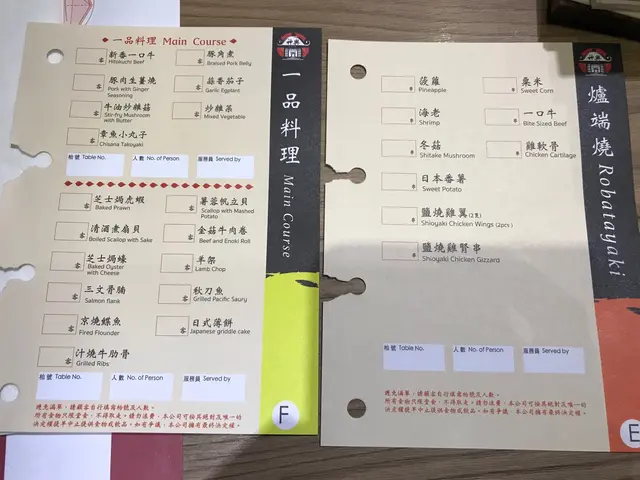 一品料理 Main Course
新香一口牛
Hitokuchi Beef
豚角煮
Braised Pork Belly
豚肉生薑燒
Pork with Ginger
Seasoning
蒜香茄子
Garlic Eggplant
牛油炒雜菇
Stir-fry Mushroom
with Butter
炒雜菜
Mixed Vegetable
章魚小丸子
Chisana Takoyaki
枱號 Table No.
人數 No. of Person
服務員 Served by
芝士焗虎蝦
Baked Prawn
薯蓉帆立貝
Scallop with Mashed
Potato
清酒煮扇貝
Boiled Scallop with Sake
金菇牛肉卷
Beef and Enoki Roll
芝士焗蠔
Baked Oyster
with Cheese
羊架
Lamb Chop
三文魚腩
Salmon flank
秋刀魚
Grilled Pacific Saury
京燒鰈魚
Fired Flounder
日式薄餅
Japanese griddle cake
汁燒牛肋骨
Grilled Ribs
枱號 Table No.
人數 No. of Person
服務員 Served by
避免漏單，請顧客自行填寫枱號及人數。
所有食物只限堂食，不得取走。請勿浪費，本公司可按其絕對及唯一的
決定權提早中止提供食物或飲品。如有爭議，本公司擁有最終決定權。
一品料理 Main Course
F
菠蘿
Pineapple
粟米
Sweet Corn
海老
Shrimp
一口牛
Bite Sized Beef
冬菇
Shitake Mushroom
雞軟骨
Chicken Cartilage
日本番薯
Sweet Potato
鹽燒雞翼(2隻)
Shioyaki Chicken Wings (2pcs)
鹽燒雞腎串
Shioyaki Chicken Gizzard
枱號 Table No.
人數 No. of Person
服務員 Served by
避免漏單，請顧客自行填寫枱號及人數。
所有食物只限堂食，不得取走。請勿浪費，本公司可按其絕對及唯一的
決定權提早中止提供食物或飲品。如有爭議，本公司擁有最終決定權。
爐端燒 Robatayaki
E